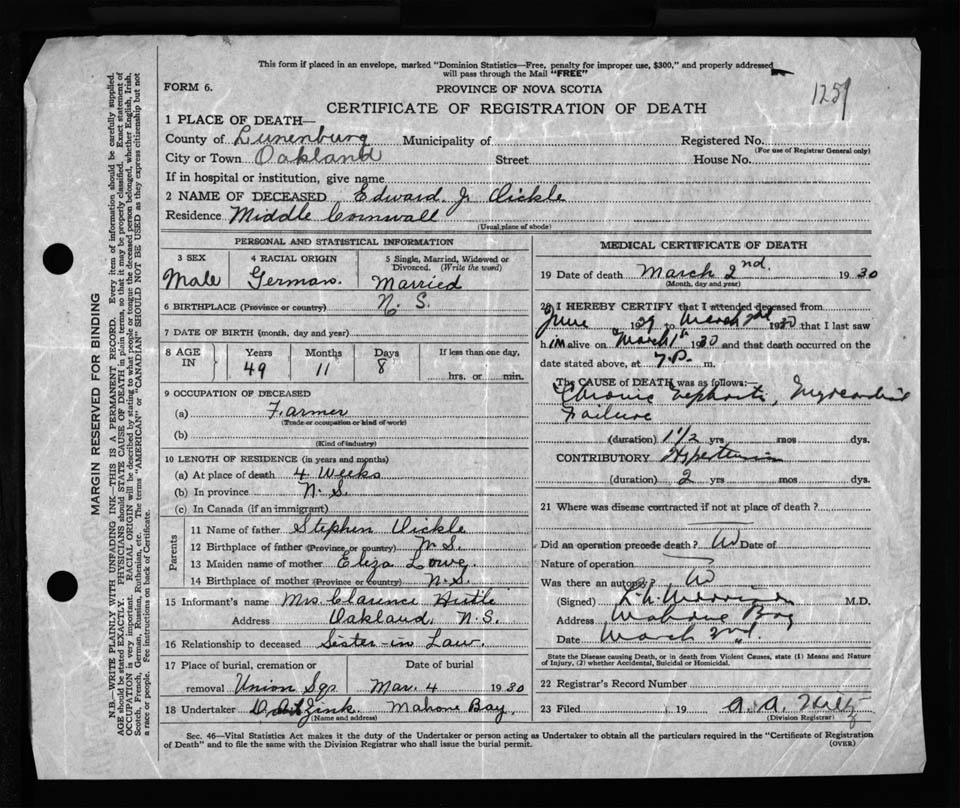 This form if placed in an envelope, marked "Dominion Statistics—Free, penalty for improper use, $300," and properly addressed
will pass through the Mail "FREE"
FORM 6.
PROVINCE OF NOVA SCOTIA
1259
CERTIFICATE OF REGISTRATION OF DEATH
1 PLACE OF DEATH—
County of Lunenburg Municipality of Registered No.
(For use of Registrar General only)
City or Town Oakland Street House No.
If in hospital or institution, give name
2 NAME OF DECEASED Edward J.
Residence Middle Cornwall
(Usual place of abode)
PERSONAL AND STATISTICAL INFORMATION
3 SEX 4 RACIAL ORIGIN 5 Single, Married, Widowed or
Divorced. (Write the word)
Male German Married
6 BIRTHPLACE (Province or country) N. S.
7 DATE OF BIRTH (month, day and year)
8 AGE Years Months Days If less than one day,
IN 49 11 8 hrs. or min.
9 OCCUPATION OF DECEASED
(a) Farmer
(Trade or occupation or kind of work)
(b)
(Kind of industry)
10 LENGTH OF RESIDENCE (in years and months)
(a) At place of death 4 Weeks
(b) In province N. S.
(c) In Canada (if an immigrant)
Parents
11 Name of father Stephen
12 Birthplace of father (Province or country) N. S.
13 Maiden name of mother Eliza
14 Birthplace of mother (Province or country) N. S.
15 Informant's name Mrs. Clarence
Address Oakland, N. S.
16 Relationship to deceased Sister-in Law.
17 Place of burial, cremation or Date of burial
removal Union Sqr Mar. 4 1930
18 Undertaker Zink Mahone Bay,
(Name and address)
MEDICAL CERTIFICATE OF DEATH
19 Date of death March 2nd. 1930
(Month, day and year)
20 I HEREBY CERTIFY that I attended deceased from
June 1929 to March 2nd 1930 that I last saw
him alive on March 1st 1930 and that death occurred on the
date stated above, at 7.P. m.
The CAUSE of DEATH was as follows:—
Chronic Nephritis, Myocardial
Failure
(duration) 1 1/2 yrs mos dys.
CONTRIBUTORY Hypertension
(duration) 2 yrs mos dys.
21 Where was disease contracted if not at place of death?
Did an operation precede death? No Date of
Nature of operation
Was there an autopsy? No
(Signed) M.D.
Address Mahone Bay
Date March 2nd.
State the Disease causing Death, or in death from Violent Causes, state (1) Means and Nature
of Injury, (2) whether Accidental, Suicidal or Homicidal.
22 Registrar's Record Number
23 Filed 19 A. A.
(Division Registrar)
Sec. 46—Vital Statistics Act makes it the duty of the Undertaker or person acting as Undertaker to obtain all the particulars required in the "Certificate of Registration
of Death" and to file the same with the Division Registrar who shall issue the burial permit. (OVER)
MARGIN RESERVED FOR BINDING
N.B.—WRITE PLAINLY WITH UNFADING INK—THIS IS A PERMANENT RECORD. Every item of information should be carefully supplied.
AGE should be stated EXACTLY. PHYSICIANS should STATE CAUSE OF DEATH in plain terms, so that it may be properly classified. Exact statement of
OCCUPATION is very important. RACIAL ORIGIN will be described by stating to what people or tongue the deceased person belonged, whether English, Irish,
Scotch, French, German, Russian, Ruthenian, etc. The terms "AMERICAN" or "CANADIAN" SHOULD NOT BE USED as they express citizenship but not
a race or people. Fee instructions on back of Certificate.